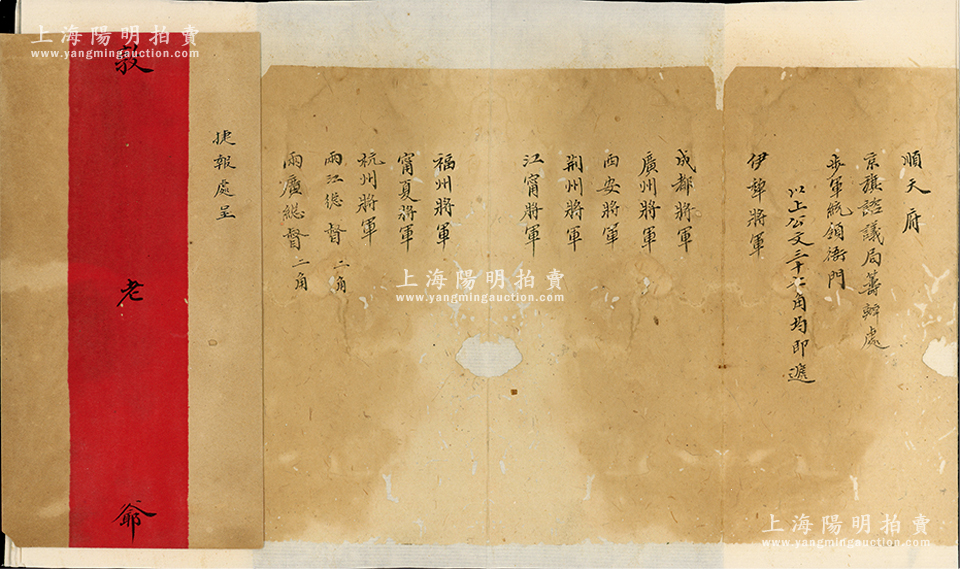 順天府
京旗諮議局籌辦處
步軍統領衙門
以上公文三十角均即遞
伊犂將軍
成都將軍
廣州將軍
西安將軍
荆州將軍
江甯將軍
福州將軍
甯夏將軍
杭州將軍
兩江總督 二角
兩廣總督 二角
捷報處呈
老爺
上海陽明拍賣
www.yangmingauction.com
上海陽明拍賣
www.yangmingauction.com
上海陽明拍賣
www.yangmingauction.com